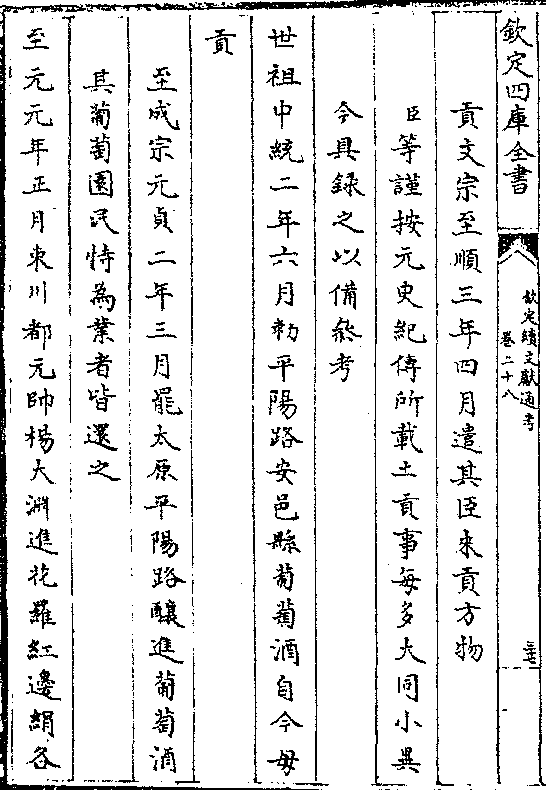 欽定四庫全書
欽定續文獻通考
卷二十八
貢文宗至順三年四月遣其臣來貢方物
臣等謹按元史紀傳所載土貢事每多大同小異
今具録之以備叅考
世祖中統二年六月勅平陽路安邑縣葡萄酒自今毋
貢
至成宗元貞二年三月罷太原平陽路釀進葡萄酒
其葡萄園民恃為業者皆還之
至元元年正月東川都元帥楊大淵進花羅紅邊絹各